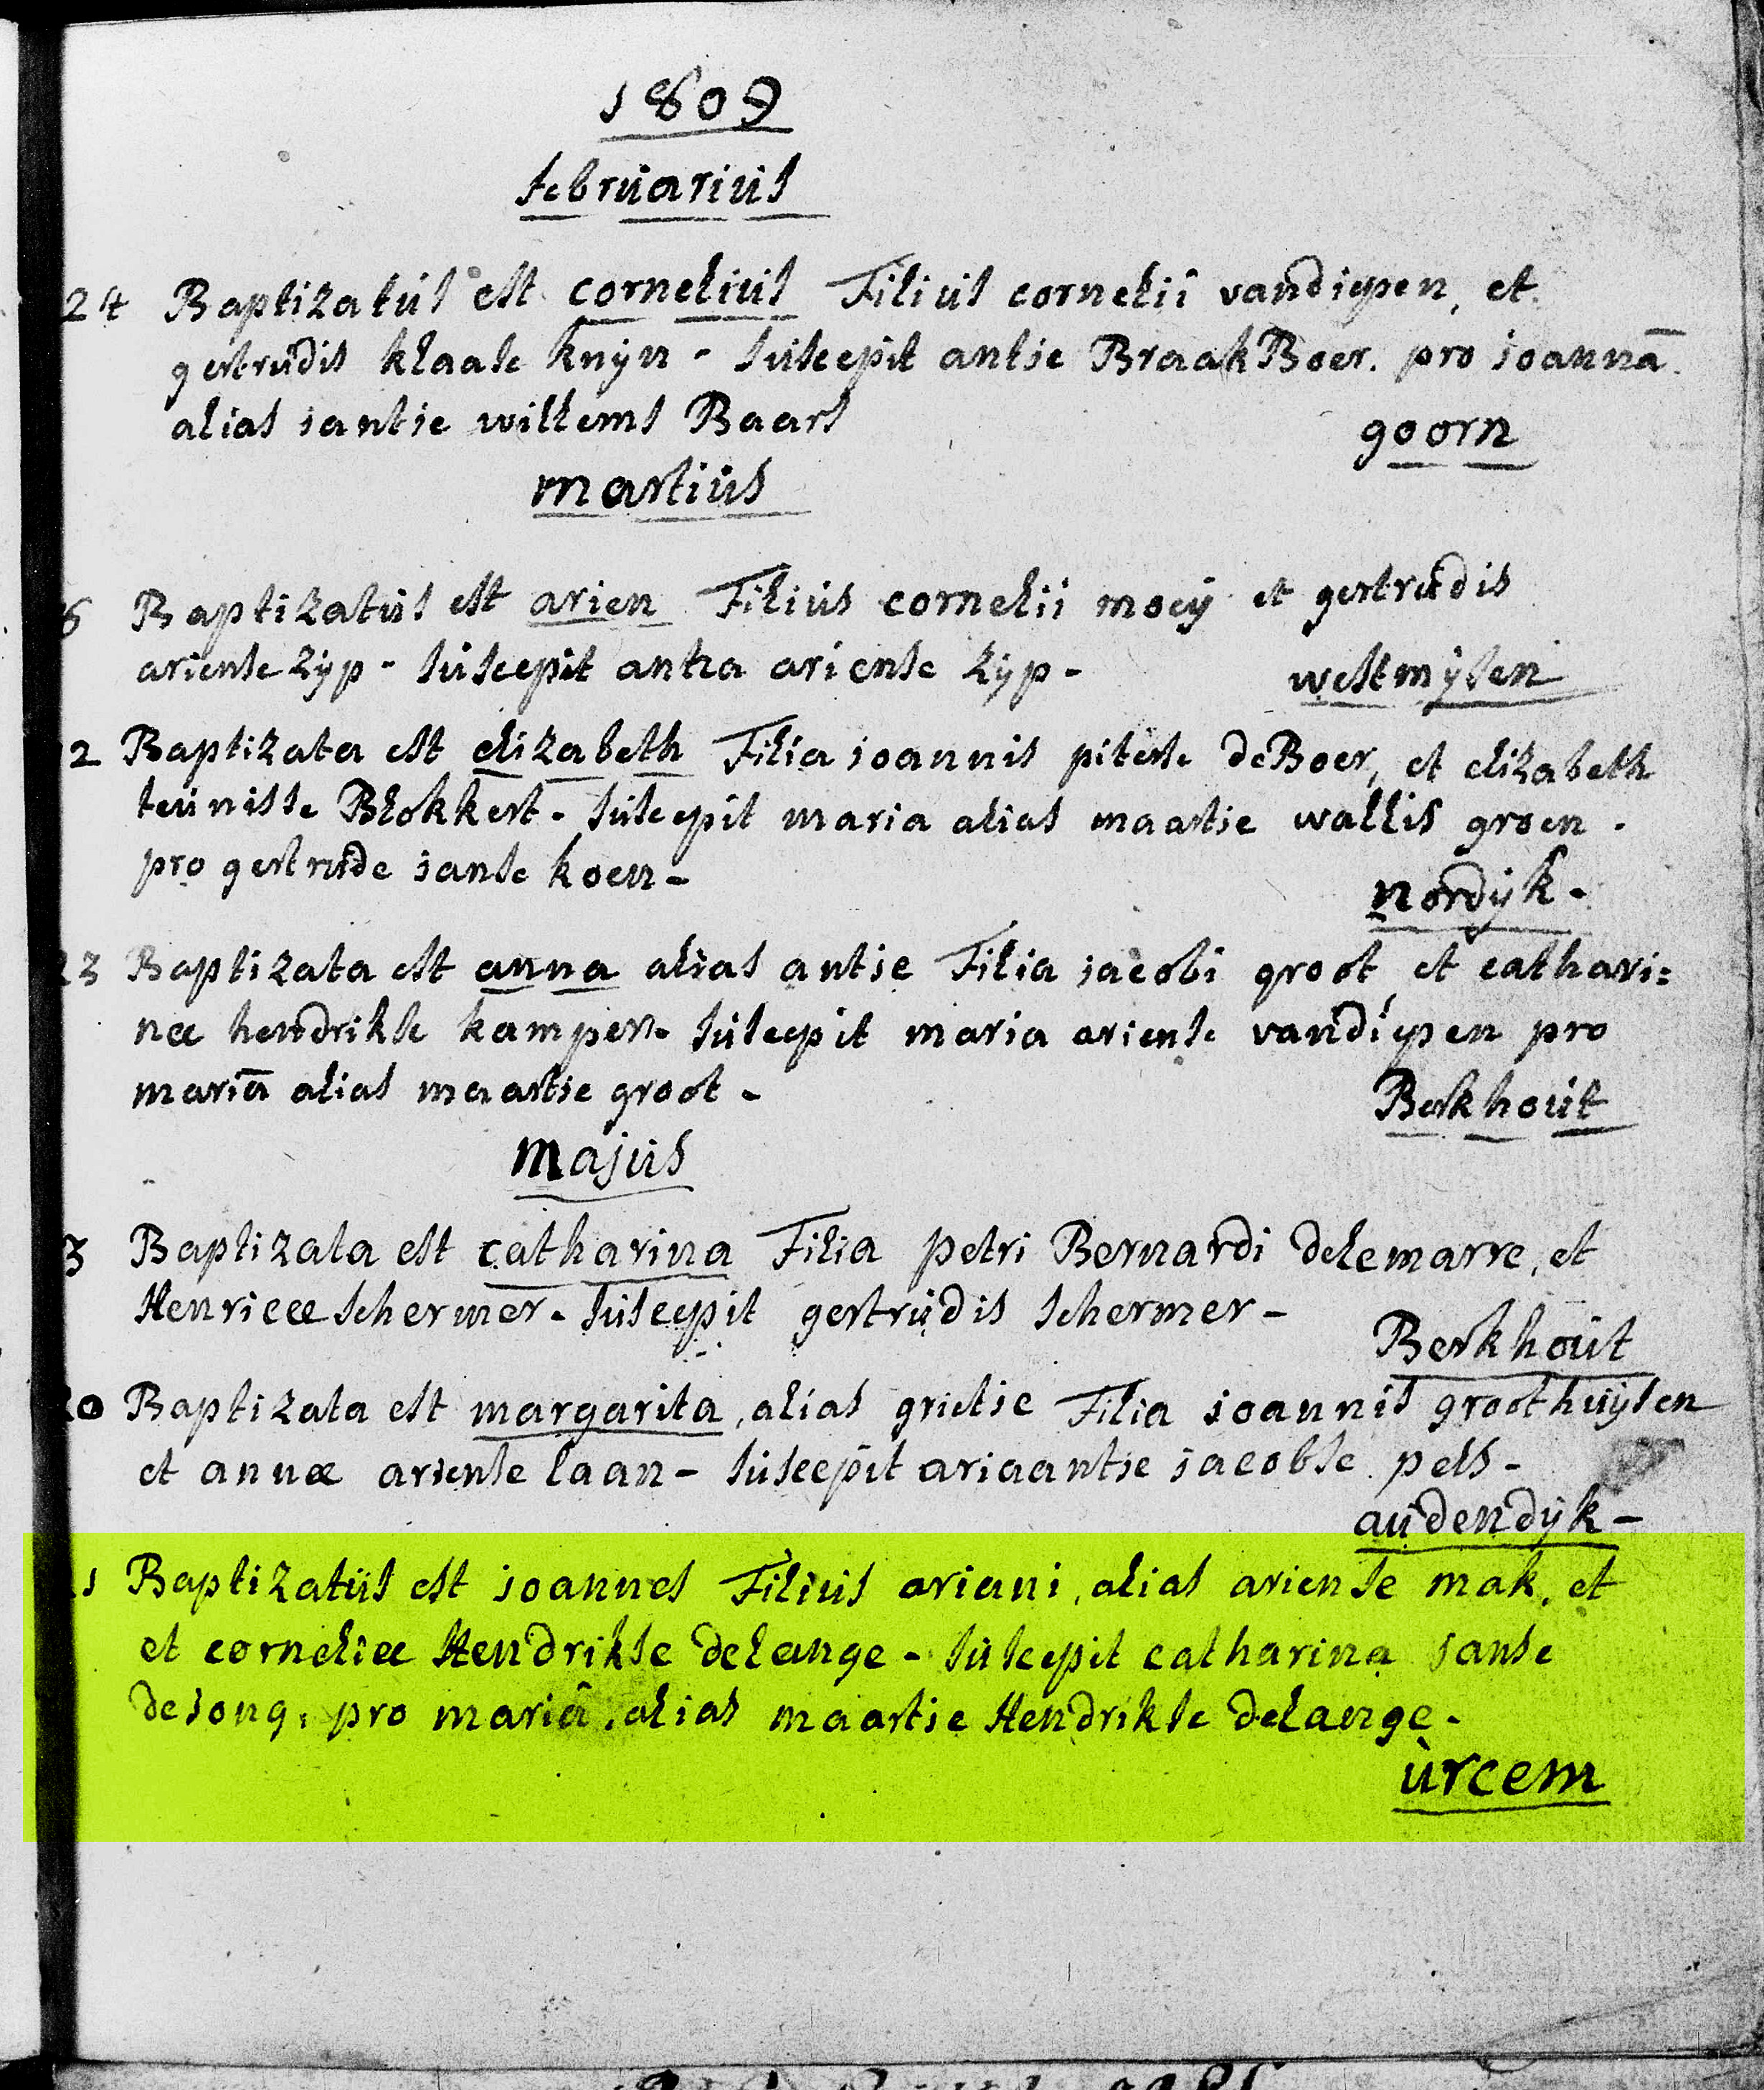 1809
februarius
24 Baptizatus est cornelius Filius cornelii vandiepen, et
gertrudis klaase knyn - suscepit antje BraakBoer. pro joannā
alias jantje willems Baars
goorn
martius
6 Baptizatus est arien Filius cornelii moeij et gertrudis
ariense zyp - suscepit antia ariense zyp -
westmysen
2 Baptizata est elizabeth Filia joannis piterse deBoer, et elizabeth
teunisse Blokkert - suscepit maria alias maartje wallis groen -
pro gertrude janse koen -
nordyk -
23 Baptizata est anna alias antje Filia jacobi groot et cathari=
næ hendrikse kamper - suscepit maria ariense vandiepen pro
mariā alias maartje groot -
Berkhout
majus
3 Baptizata est catharina Filia petri Bernardi delemarre, et
Henricæ schermer - suscepit gertrudis schermer -
Berkhout
20 Baptizata est margarita, alias grietje Filia joannis groothuysen
et annæ ariense laan - suscepit ariaantje jacobse pels -
audendyk -
21 Baptizatus est joannes Filius ariani, alias ariense mak, et
et corneliæ Hendrikse delange - suscepit catharina janse
dejong, pro mariâ, alias maartje Hendrikse delange -
ùrcem